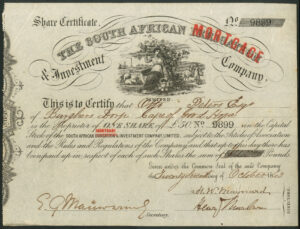 Share Certificate.
No 9899
THE SOUTH AFRICAN MORTGAGE
& Investment Company,
LIMITED
This is to Certify that Otto Peters Esq
of Burghers Dorp Cape of Good Hope
is the Proprietor of ONE SHARE of £50 No 9899 in the Capital
MORTGAGE
Stock of the SOUTH AFRICAN & INVESTMENT COMPANY LIMITED subject to the Articles of Association
and the Rules and Regulations of the Company and that up to this day there has
been paid up in respect of each of such Shares the sum of Pounds.
Given under the Common Seal of the said Company
October
Secretary.